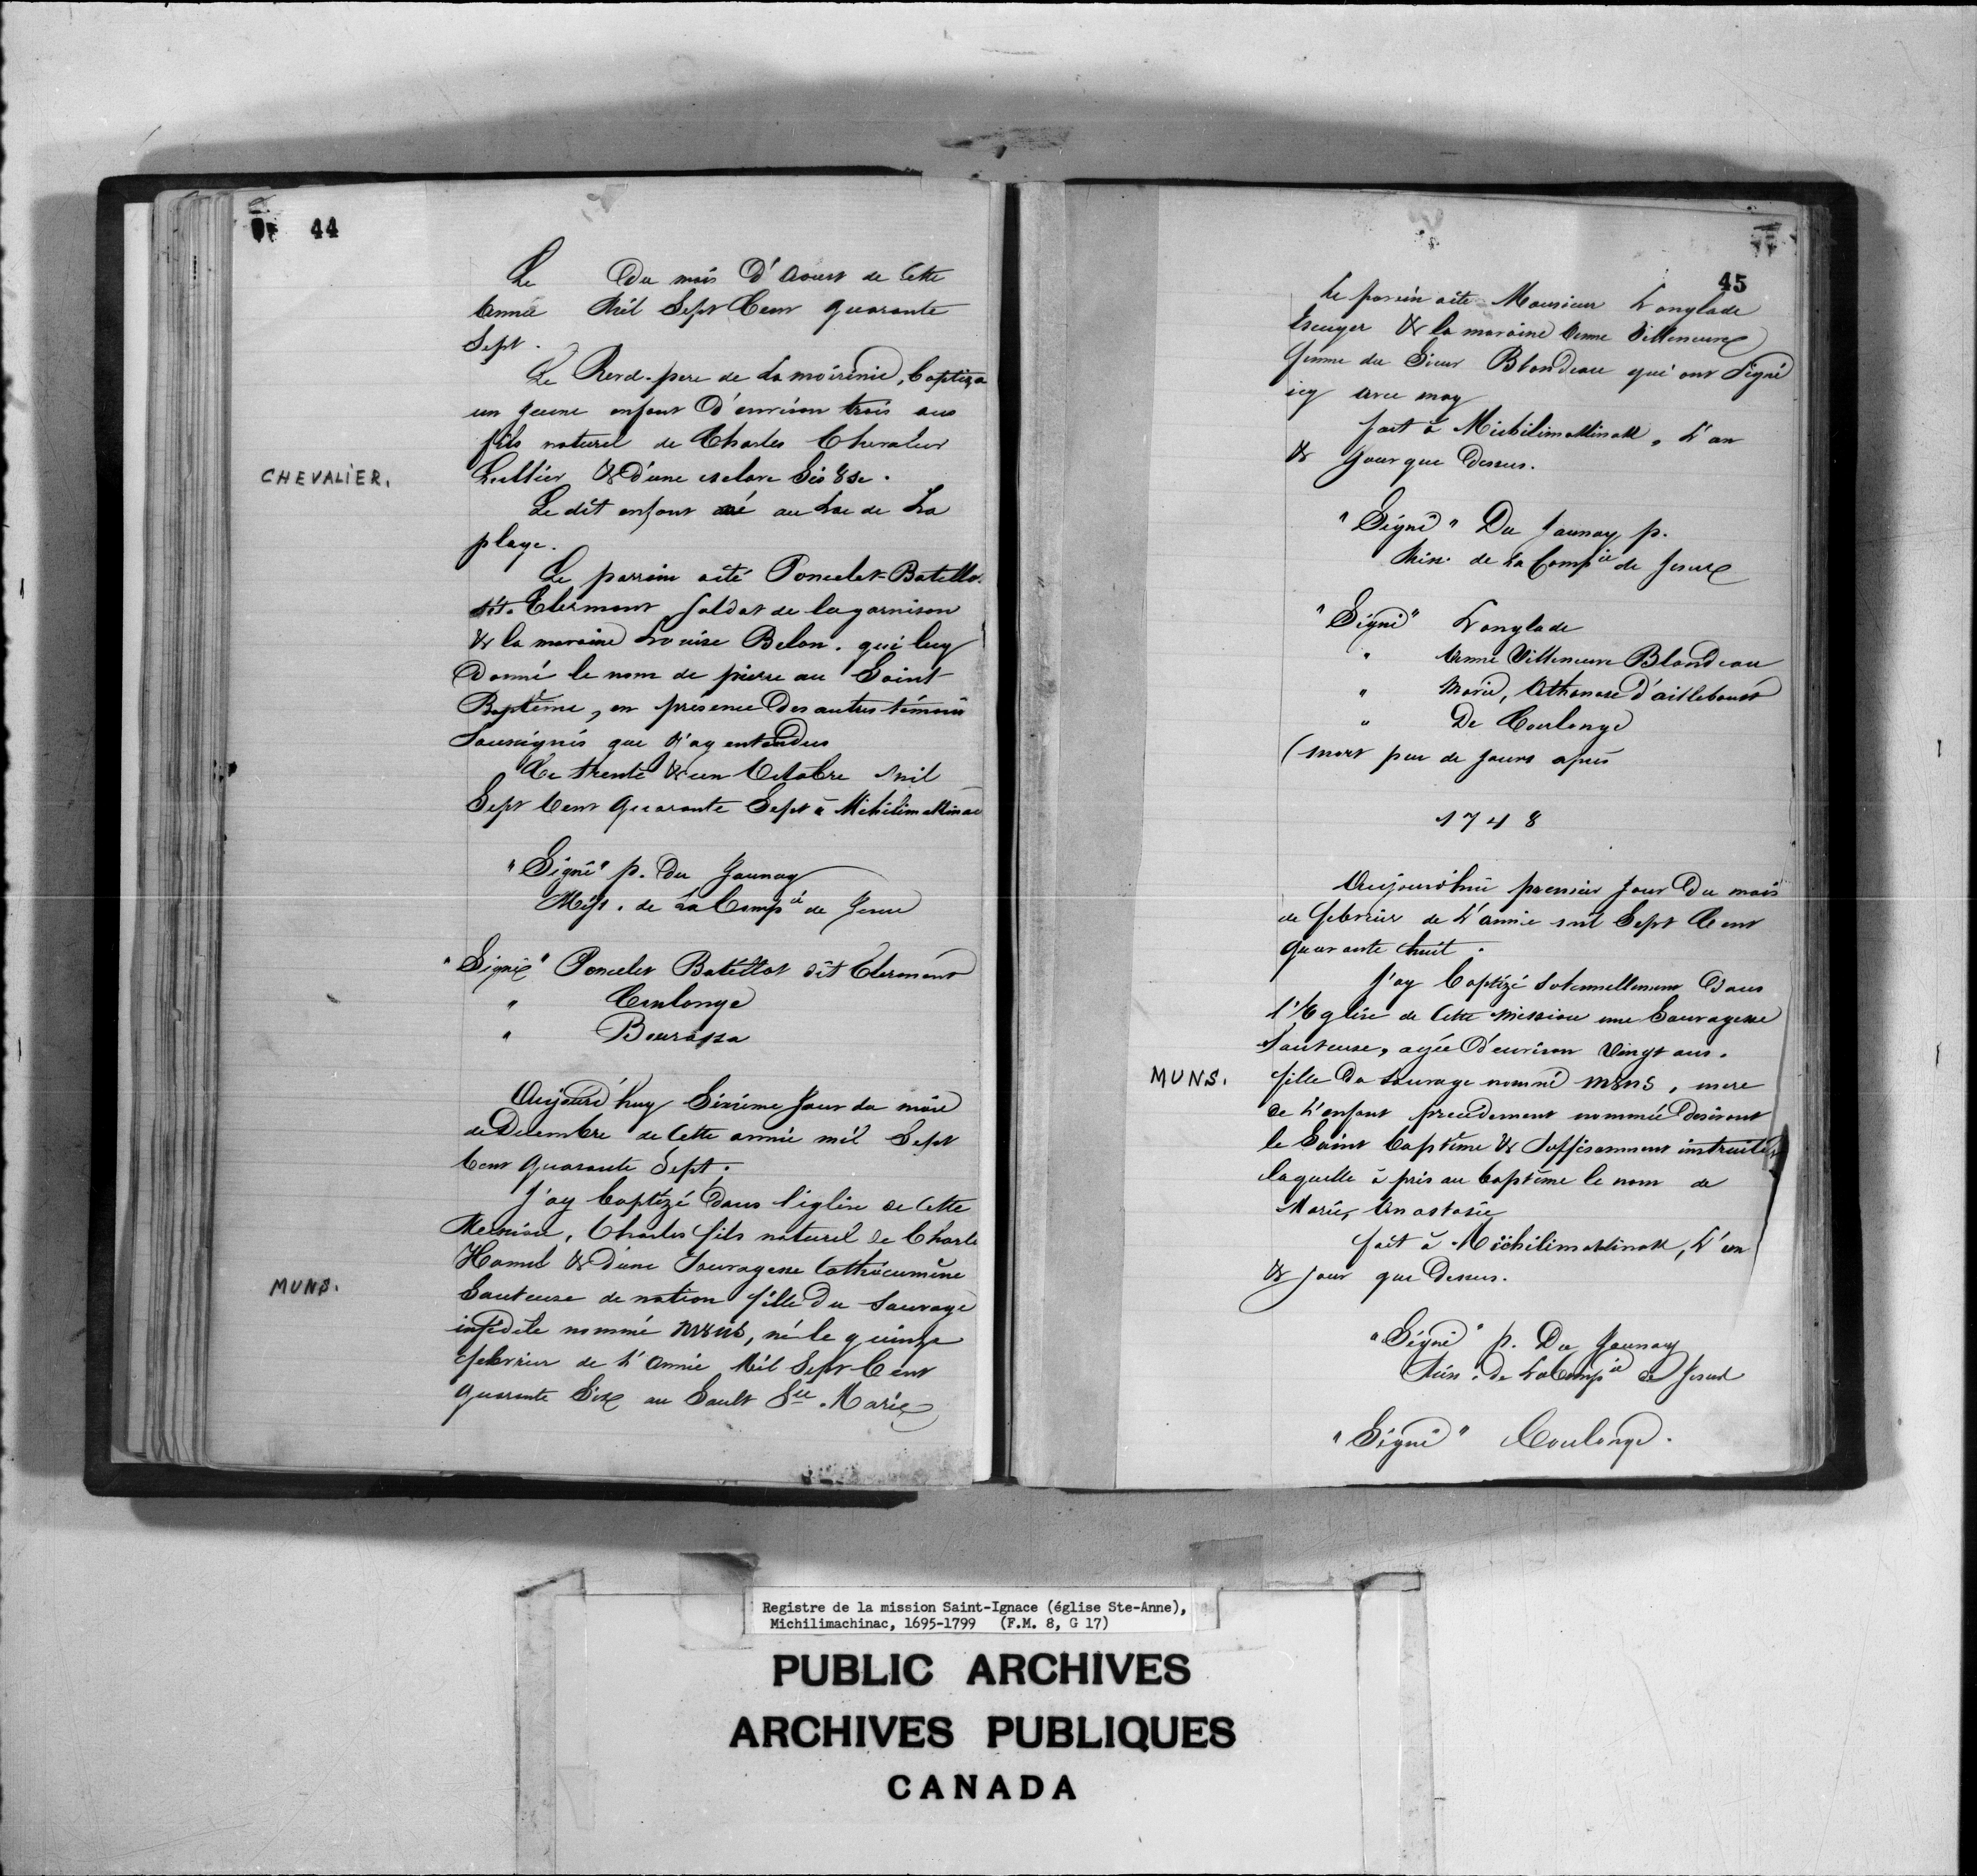 44
Le Du mois D'Aoust de Cette
Année Mil Sept Cent quarante
Sept.
Le Revd. pere de La moirenie, baptiza
un jeune enfant D'environ trois ans
fils naturel de Charles Chevalier
CHEVALIER.
Lullier & D'une esclave Sis8se.
Le dit enfant né au Lac de La
playe.
Le parrain a été Poncelet-Batillo
dit. Clermont Soldat de la garnison
& la maraine Louise Belon. qui luy
Donné le nom de pierre au Saint-
Baptême, en présence Des autres témoins
Soussignés que J'ay entendus
Ce trente & un Octobre Mil
Sept Cent Quarante Sept à Michilimakinac
"Signé" p. Du Jaunay
Miss. de La Compie de Jesus
"Signé" Poncelet Batillot dit Clermont
" Coulonge
" Bourassa
Aujourd'huy Sixième Jour du mois
de Decembre de Cette année mil Sept
Cent Quarante Sept.
J'ay baptizé Dans l'église de Cette
Mission, Charles fils naturel de Charle
Hamel & D'une Sauvagesse Cathécumène
MUNS.
Sauteuse de nation fille Du Sauvage
infidèle nommé M8NS, né le quinze
febvrier de L'Année Mil Sept Cent
quarante Six au Sault Ste. Marie
45
Le parein a été Monsieur Langlade
Escuyer & la maraine Anne Villeneuve
femme du Sieur Blondeau qui ont Signé
icy avec moy
fait à Michilimakinak, L'an
& Jour que Dessus.
"Signé" Du Jaunay p.
Miss. de La Compie de Jesus
"Signé" Langlade
" Anne Villeneuve Blondeau
" Marie, Athanase D'ailleboust
" De Coulonge
(mort peu de jours après
1748
Aujourd'hui premier Jour Du mois
de febvrier de L'année mil Sept Cent
Quarante huit.
J'ay baptizé Solennellement Dans
l'Eglise de Cette Mission une Sauvagesse
Sauteuse, agée D'environ Vingt ans.
MUNS.
fille Du Sauvage nommé M8NS, mere
de L'enfant precedement nommée Desirant
le Saint baptême & Suffisamment instruite
laquelle à pris au baptême le nom de
Marie, Anastasie
fait à Michilimakinak, L'an
& jour que Dessus.
"Signé" p. Du Jaunay
Miss. de La Compie de Jesus
"Signé" Coulonge.
Registre de la mission Saint-Ignace (église Ste-Anne),
Michilimachinac, 1695-1799 (F.M. 8, G 17)
PUBLIC ARCHIVES
ARCHIVES PUBLIQUES
CANADA